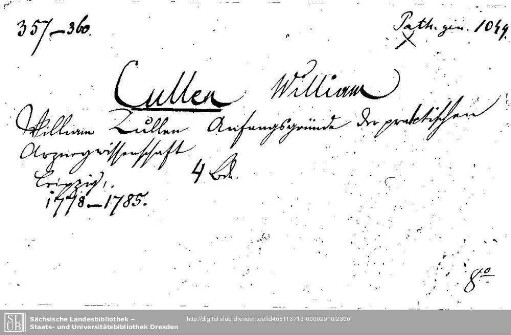 357-360. Path. gen. 1049.
Cullen William
William Cullen Anfangsgründe der praktischen
Arzneywissenschaft
4 Bde.
Leipzig,
1778-1785.
8o
SLUB
Sächsische Landesbibliothek –
Staats- und Universitätsbibliothek Dresden